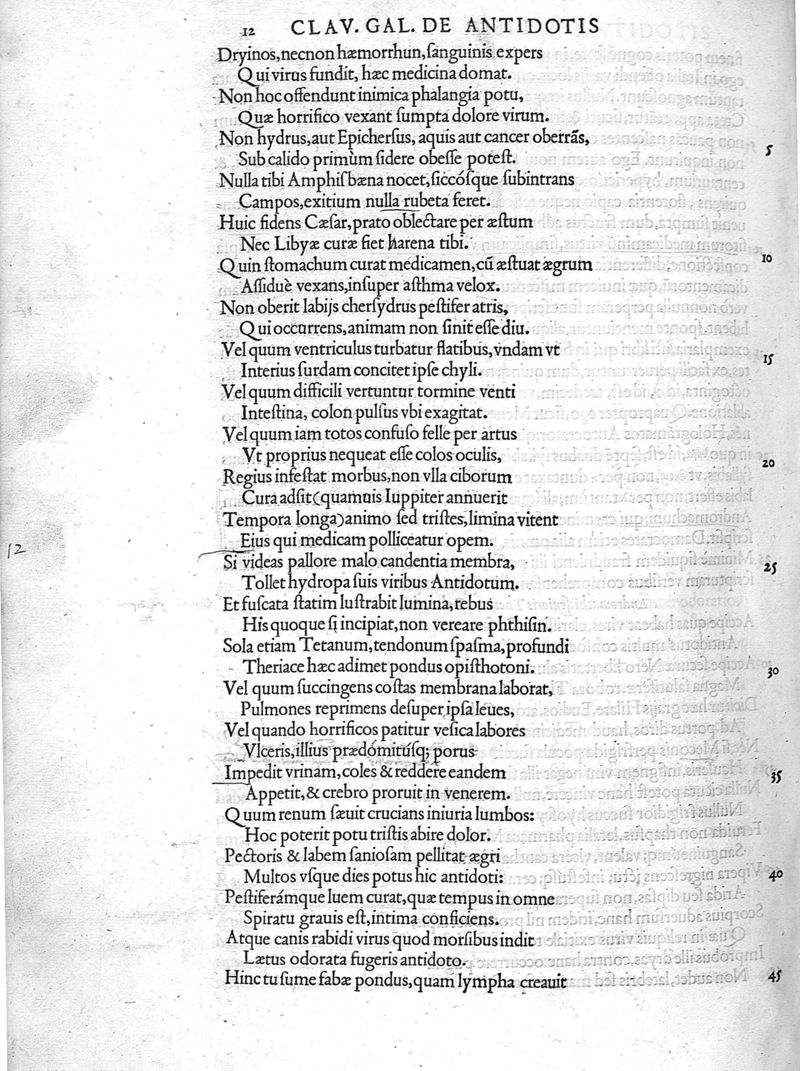 12 CLAV. GAL. DE ANTIDOTIS
Dryinos, necnon hæmorrhun, ſanguinis expers
Qui virus fundit, hæc medicina domat.
Non hoc offendunt inimica phalangia potu,
Quæ horrifico vexant ſumpta dolore virum.
Non hydrus, aut Epicherſus, aquis aut cancer oberrãs, 5
Sub calido primùm ſidere obeſſe poteſt.
Nulla tibi Amphiſbæna nocet, ſiccóſque ſubintrans
Campos, exitium nulla rubeta feret.
Huic fidens Cæſar, prato oblectare per æſtum
Nec Libyæ curæ fiet harena tibi. 10
Quin ſtomachum curat medicamen, cũ æſtuat ægrum
Aſſiduè vexans, inſuper aſthma velox.
Non oberit labijs cherſydrus peſtifer atris,
Qui occurrens, animam non ſinit eſſe diu.
Vel quum ventriculus turbatur flatibus, vndam vt 15
Interius ſurdam concitet ipſe chyli.
Vel quum difficili vertuntur tormine venti
Inteſtina, colon pulſus vbi exagitat.
Vel quum iam totos confuſo felle per artus
Vt proprius nequeat eſſe colos oculis, 20
Regius infeſtat morbus, non vlla ciborum
Cura adſit (quamuis Iuppiter annuerit
Tempora longa) animo ſed triſtes, limina vitent
Eius qui medicam polliceatur opem.
12
Si videas pallore malo candentia membra, 25
Tollet hydropa ſuis viribus Antidotum.
Et fuſcata ſtatim luſtrabit lumina, rebus
His quoque ſi incipiat, non vereare phthiſin.
Sola etiam Tetanum, tendonum ſpaſma, profundi
Theriace hæc adimet pondus opiſthotoni. 30
Vel quum ſuccingens coſtas membrana laborat,
Pulmones reprimens deſuper ipſa leues,
Vel quando horrificos patitur veſica labores
Vlceris, illius prædómitúſq; porus
Impedit vrinam, coles & reddere eandem 35
Appetit, & crebro proruit in venerem.
Quum renum ſæuit crucians iniuria lumbos:
Hoc poterit potu triſtis abire dolor.
Pectoris & labem ſanioſam pellitat ægri
Multos vſque dies potus hic antidoti: 40
Peſtiferámque luem curat, quæ tempus in omne
Spiratu grauis eſt, intima conficiens.
Atque canis rabidi virus quod morſibus indit
Lætus odorata fugeris antidoto.
Hinc tu ſume fabæ pondus, quam lympha creauit 45